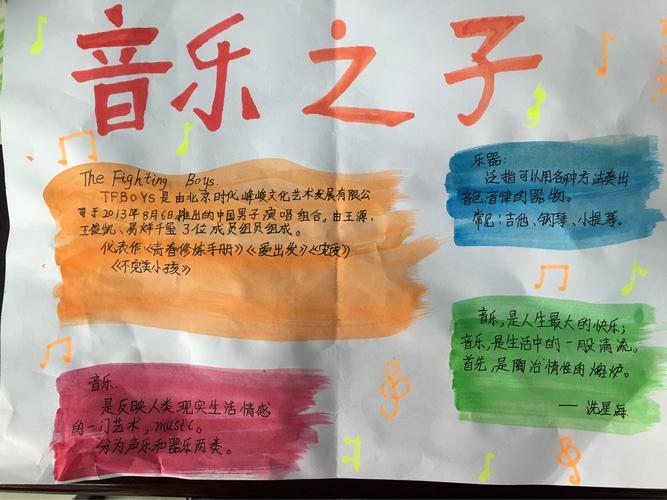 音乐之子
The Fighting Boys.
TFBOYS是由北京时代峰峻文化艺术发展有限公
司于2013年8月6日推出的中国男子演唱组合。由王源、
王俊凯、易烊千玺3位成员组员组成。
代表作《青春修炼手册》《爱出发》《宠爱》
《不完美小孩》
乐器:
泛指可以用各种方法奏出
音色音律的器物。
常见:吉他、钢琴、小提琴。
音乐,是人生最大的快乐;
音乐,是生活中的一股清流。
首先,是陶冶情性的熔炉。
——冼星海
音乐.
是反映人类现实生活情感
的一门艺术,music。
分为声乐和器乐两类。